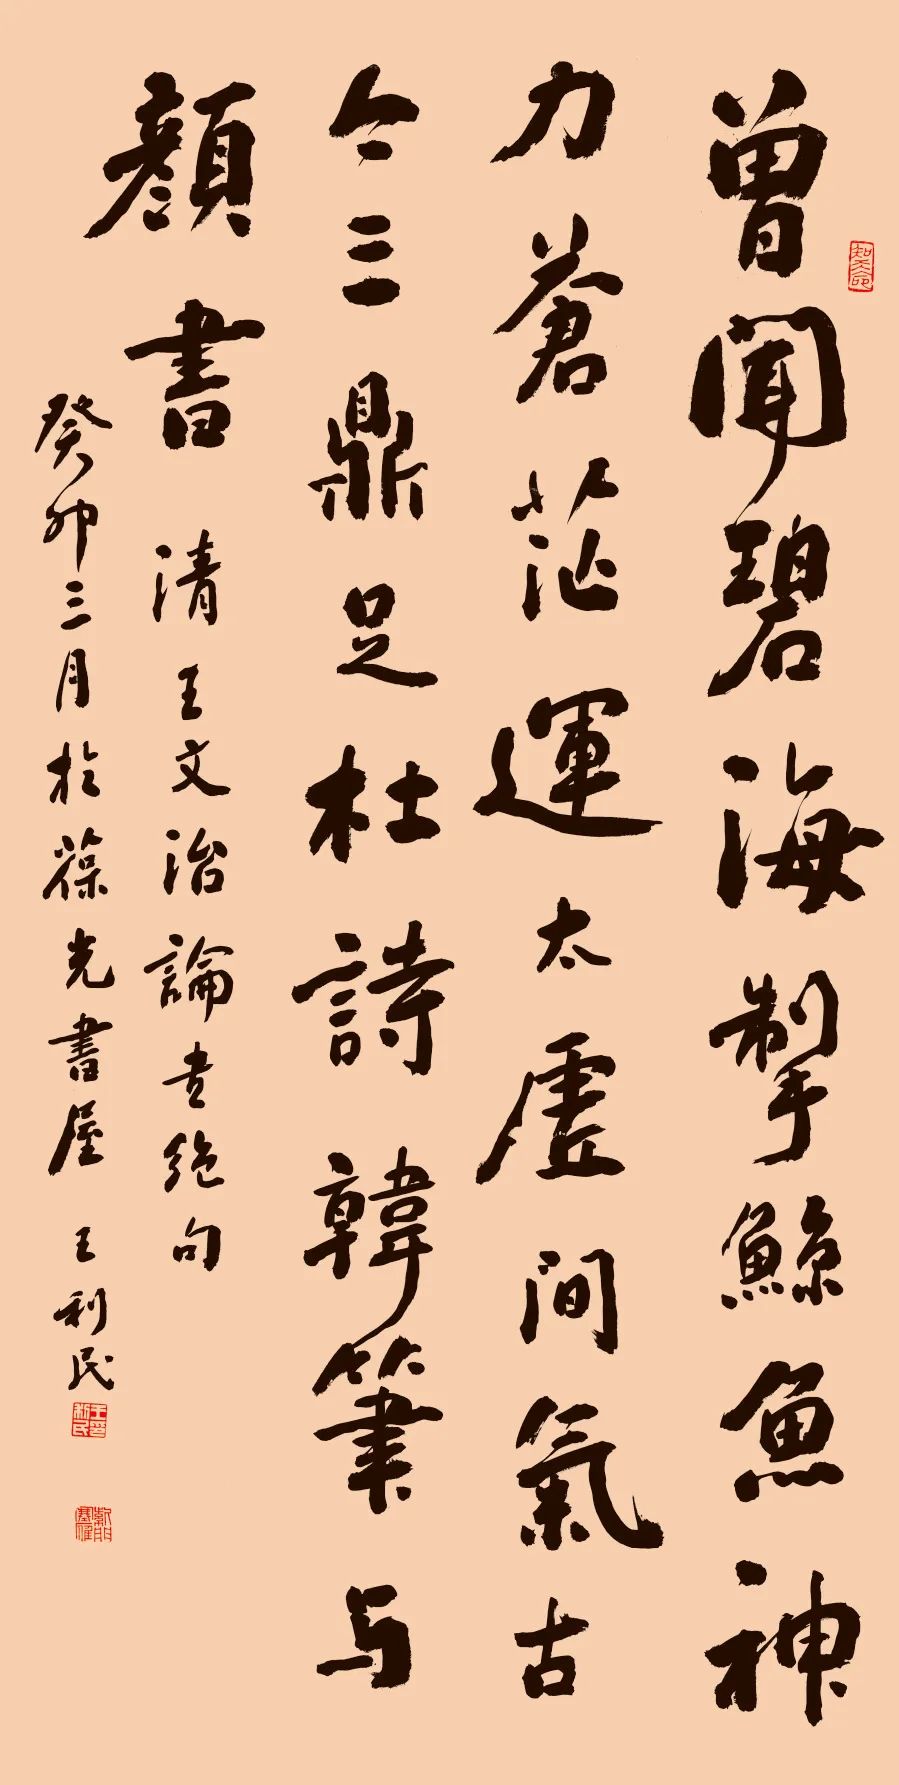 曾聞碧海掣鯨魚神
力蒼茫運太虛間氣古
今三鼎足杜詩韓筆与
顏書
清王文治論書絶句
癸卯三月於葆光書屋 王利民
知天命